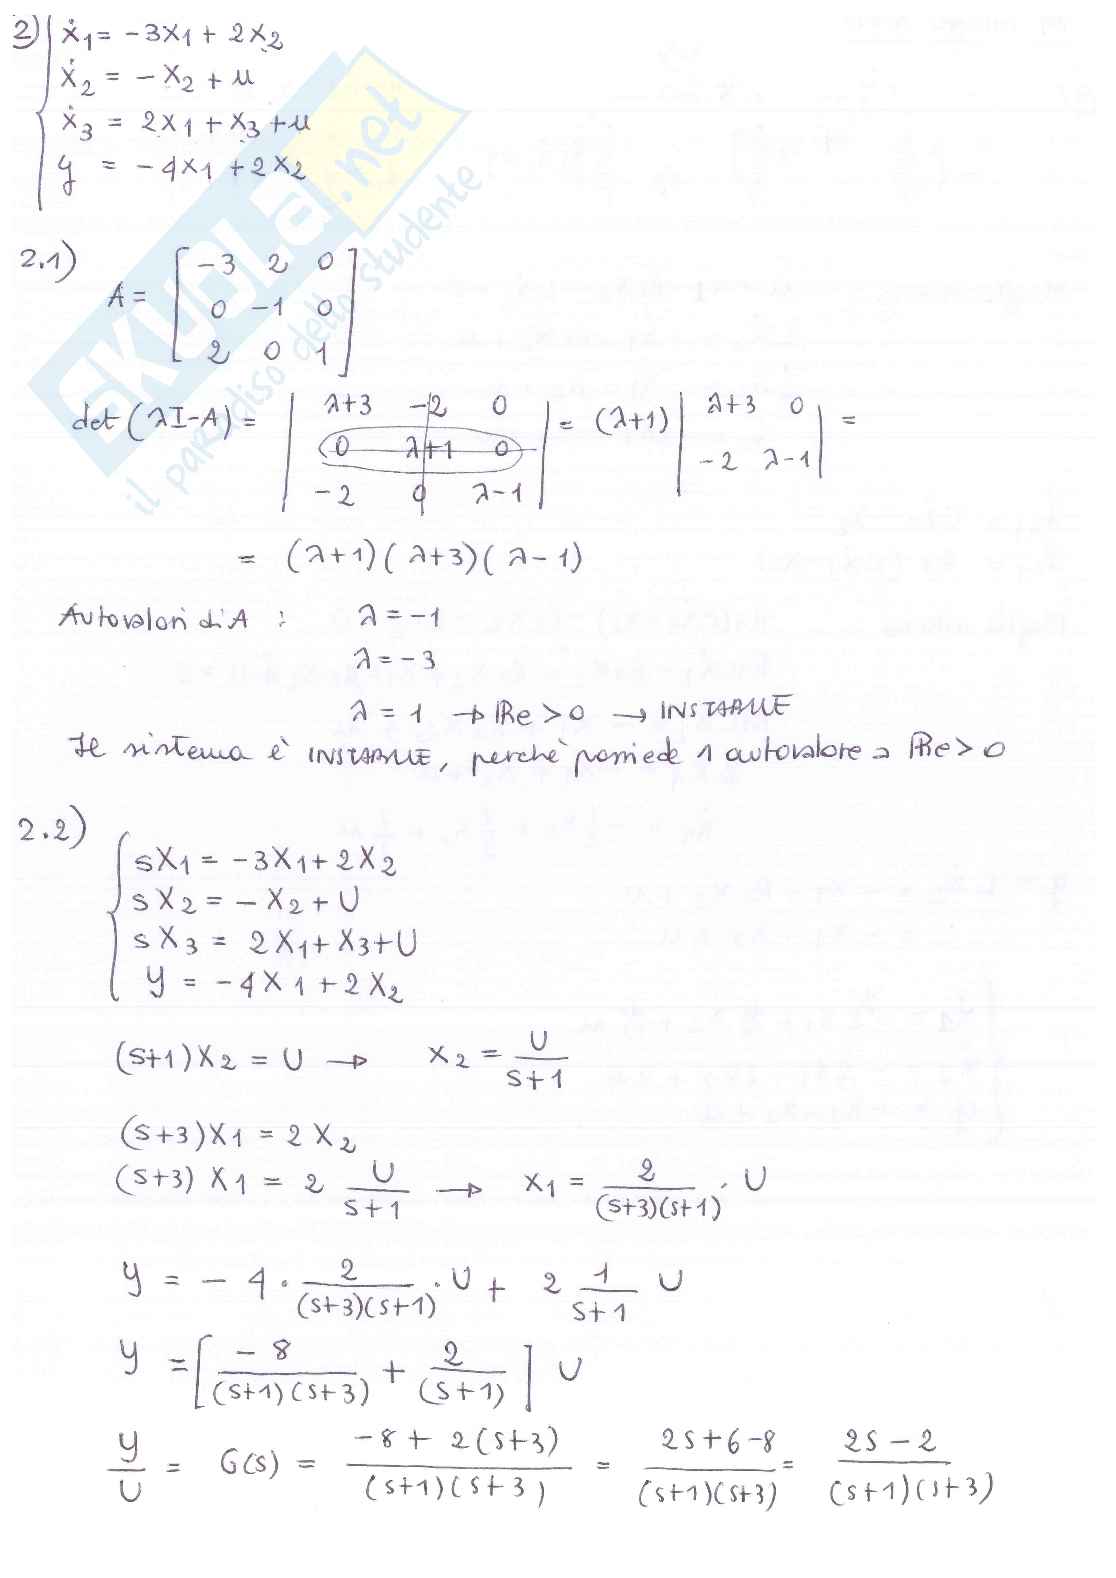 2) ẋ1 = -3x1 + 2x2
ẋ2 = -x2 + u
ẋ3 = 2x1 + x3 + u
y = -4x1 + 2x2
SKUOLA.net
il paradiso dello studente
2.1)
A = [ -3 2 0
0 -1 0
2 0 1 ]
det (λI-A) = | λ+3 -2 0 | = (λ+1) | λ+3 0 | =
| 0 λ+1 0 |
| -2 0 λ-1 | | -2 λ-1 |
= (λ+1)(λ+3)(λ-1)
Autovalori di A : λ = -1
λ = -3
λ = 1 → Re > 0 → INSTABILE
Il sistema è INSTABILE, perchè possiede 1 autovalore a Re > 0
2.2)
sX1 = -3X1 + 2X2
sX2 = -X2 + U
sX3 = 2X1 + X3 + U
Y = -4X1 + 2X2
(s+1)X2 = U → X2 = U/(s+1)
(s+3)X1 = 2X2
(s+3) X1 = 2 U/(s+1) → X1 = 2/((s+3)(s+1)) · U
Y = -4 · 2/((s+3)(s+1)) · U + 2 1/(s+1) U
Y = [ -8/((s+1)(s+3)) + 2/(s+1) ] U
Y/U = G(s) = (-8 + 2(s+3))/((s+1)(s+3)) = (2s+6-8)/((s+1)(s+3)) = (2s-2)/((s+1)(s+3))